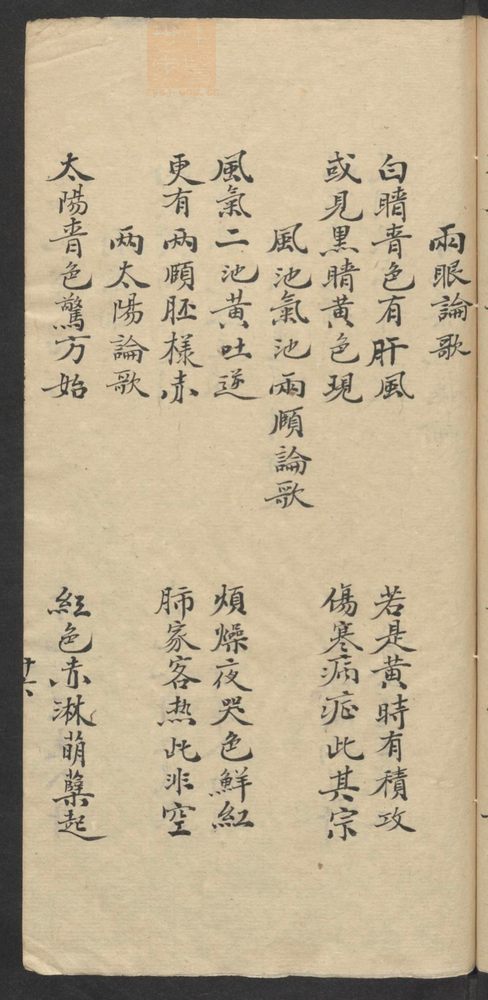 兩眼論歌
白睛青色有肝風 若是黃時有積攻
或見黑睛黃色現 傷寒病症此其宗
風池氣池兩頤論歌
風氣二池黃吐逆 煩燥夜哭色鮮紅
更有兩頤胚樣赤 肺家客熱此非空
兩太陽論歌
太陽青色驚方始 紅色赤淋萌孽起
廿六